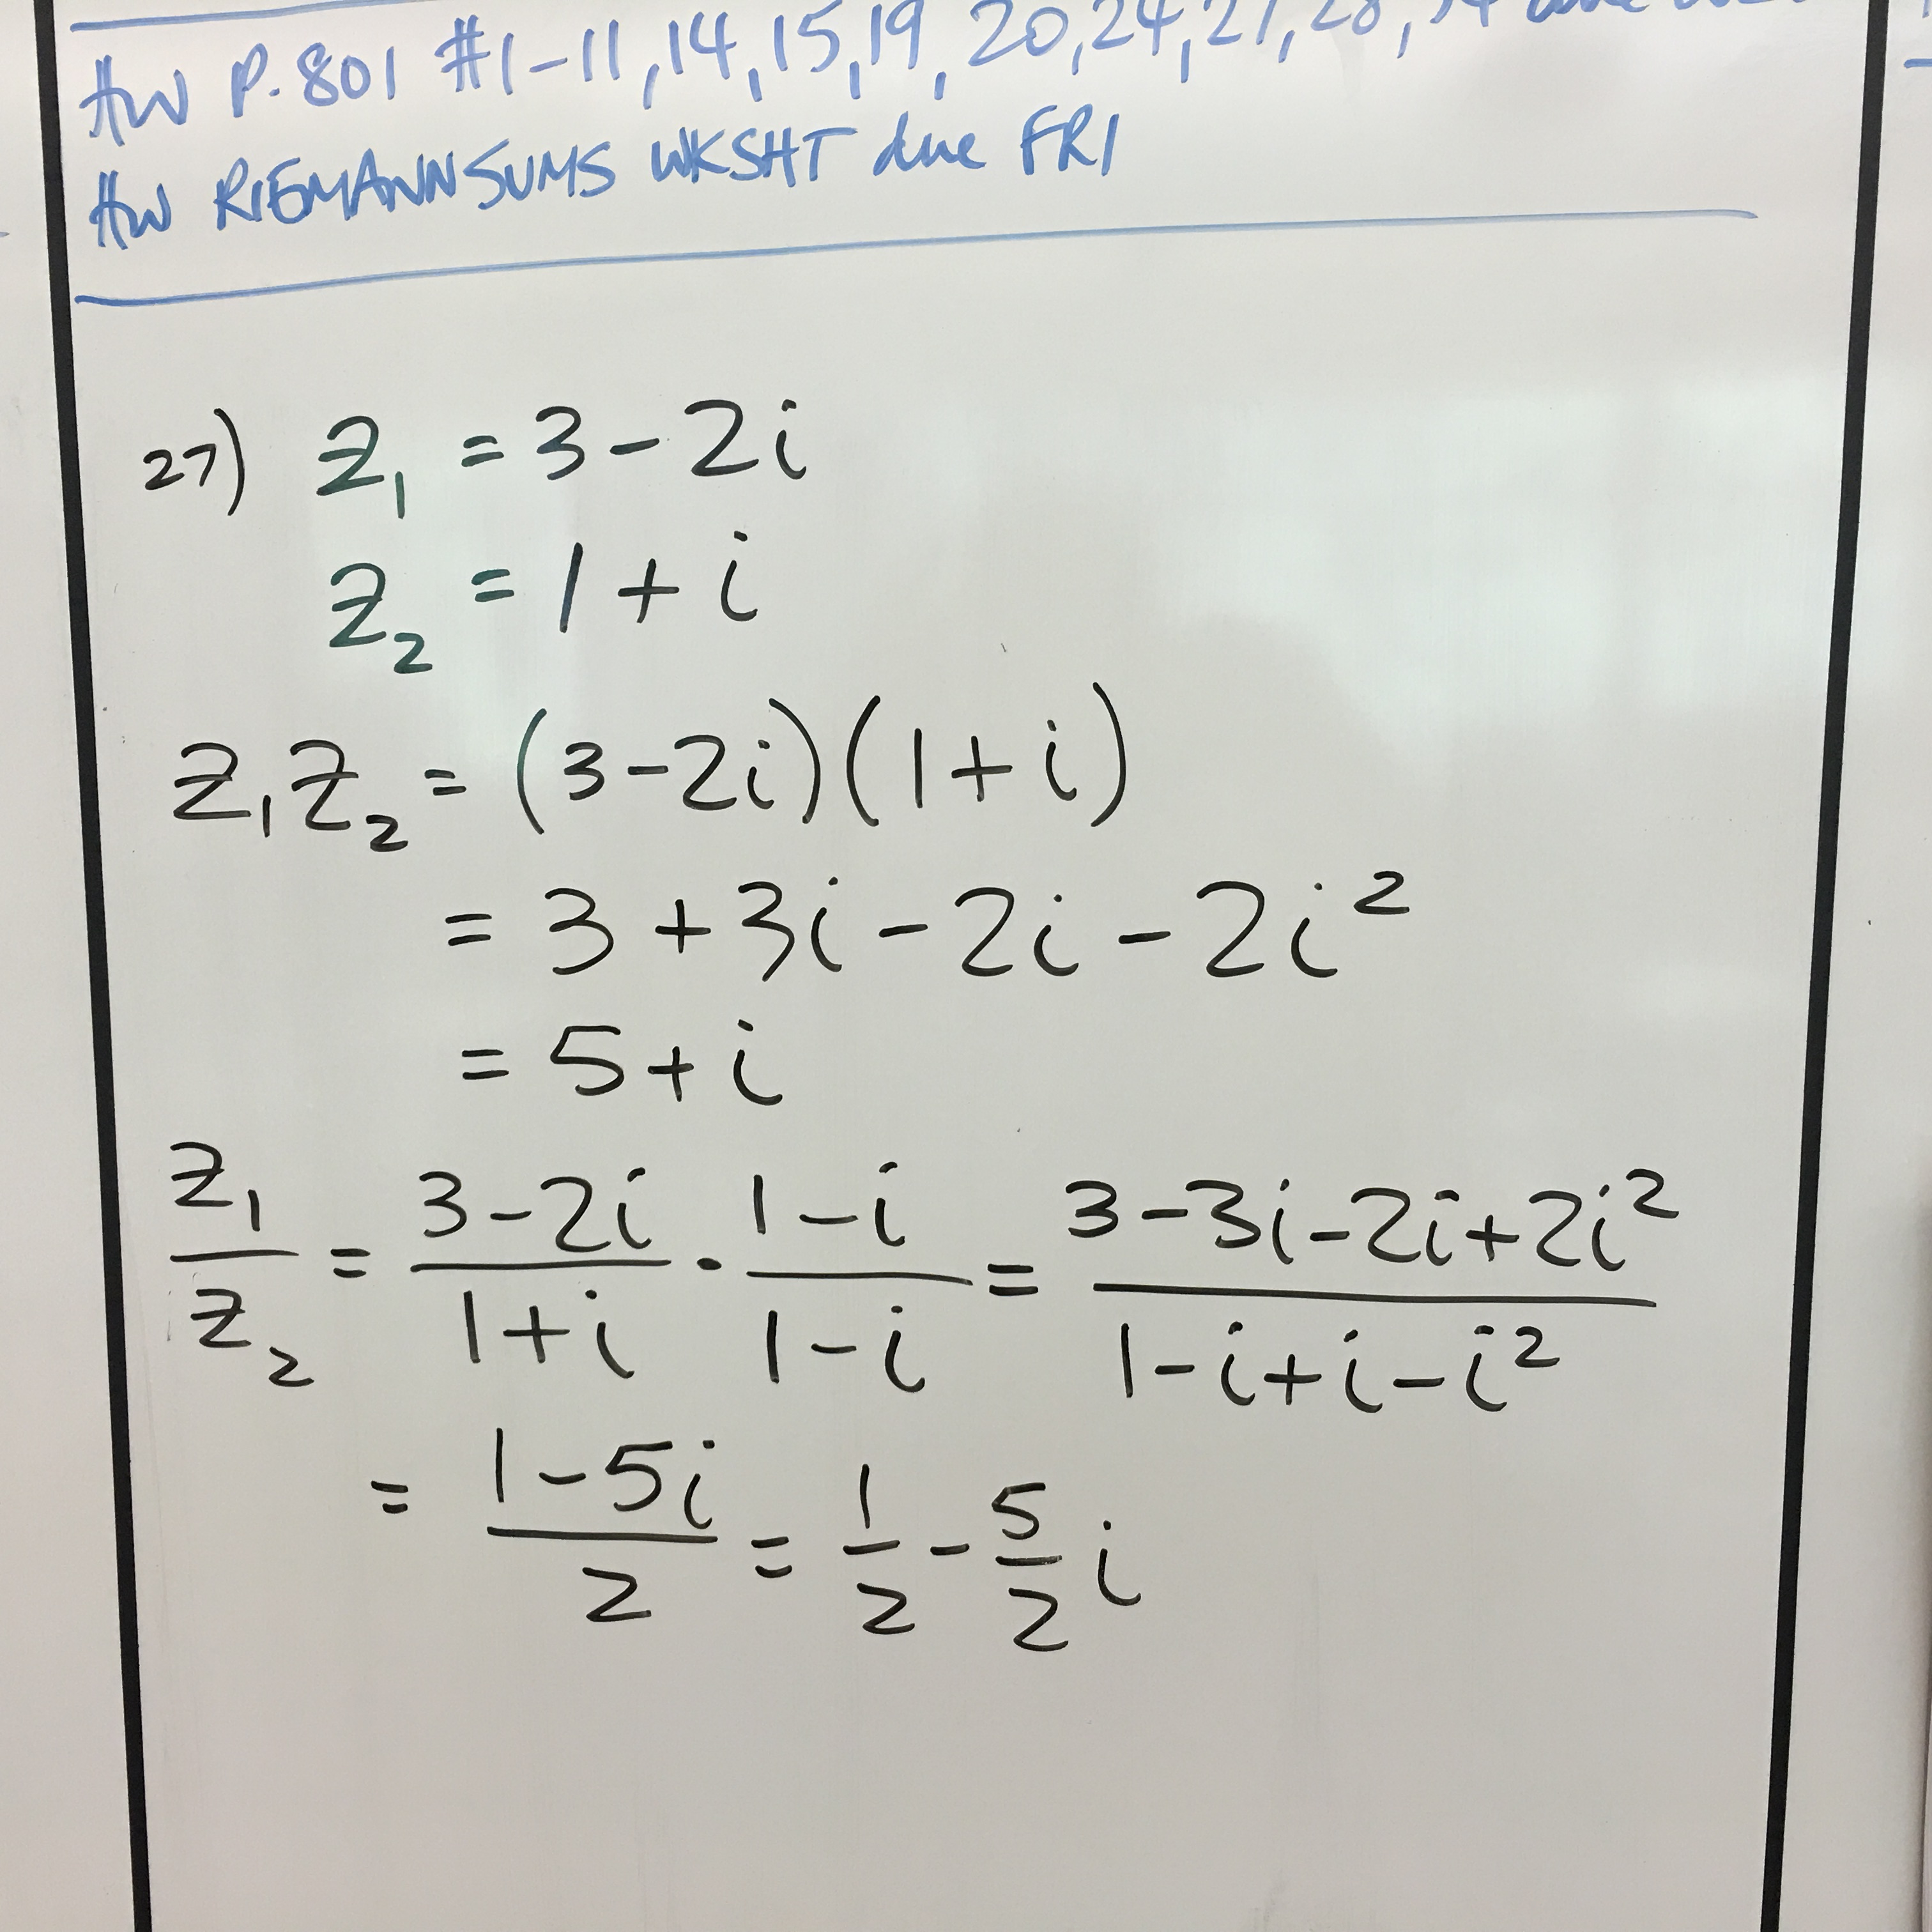 HW P.801 #1-11, 14, 15, 19, 20, 24, 27, 28,
HW RIEMANN SUMS WKSHT due FRI
27) z₁ = 3-2i
z₂ = 1+i
z₁z₂ = (3-2i)(1+i)
= 3+3i-2i-2i²
= 5+i
z₁/z₂ = (3-2i)/(1+i) · (1-i)/(1-i) = (3-3i-2i+2i²)/(1-i+i-i²)
= (1-5i)/2 = 1/2 - 5/2 i